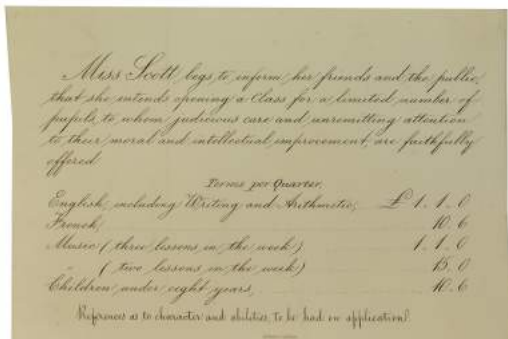 Miss Scott begs to inform her friends and the public,
that she intends opening a Class for a limited number of
pupils, to whom judicious care and unremitting attention
to their moral and intellectual improvement, are faithfully
offered
Terms per Quarter.
English, including Writing and Arithmetic, £ 1. 1. 0
French, 10. 6
Music (three lessons in the week) 1. 1. 0
" (two lessons in the week) 15. 0
Children under eight years, 10. 6
References as to character and abilities, to be had on application.